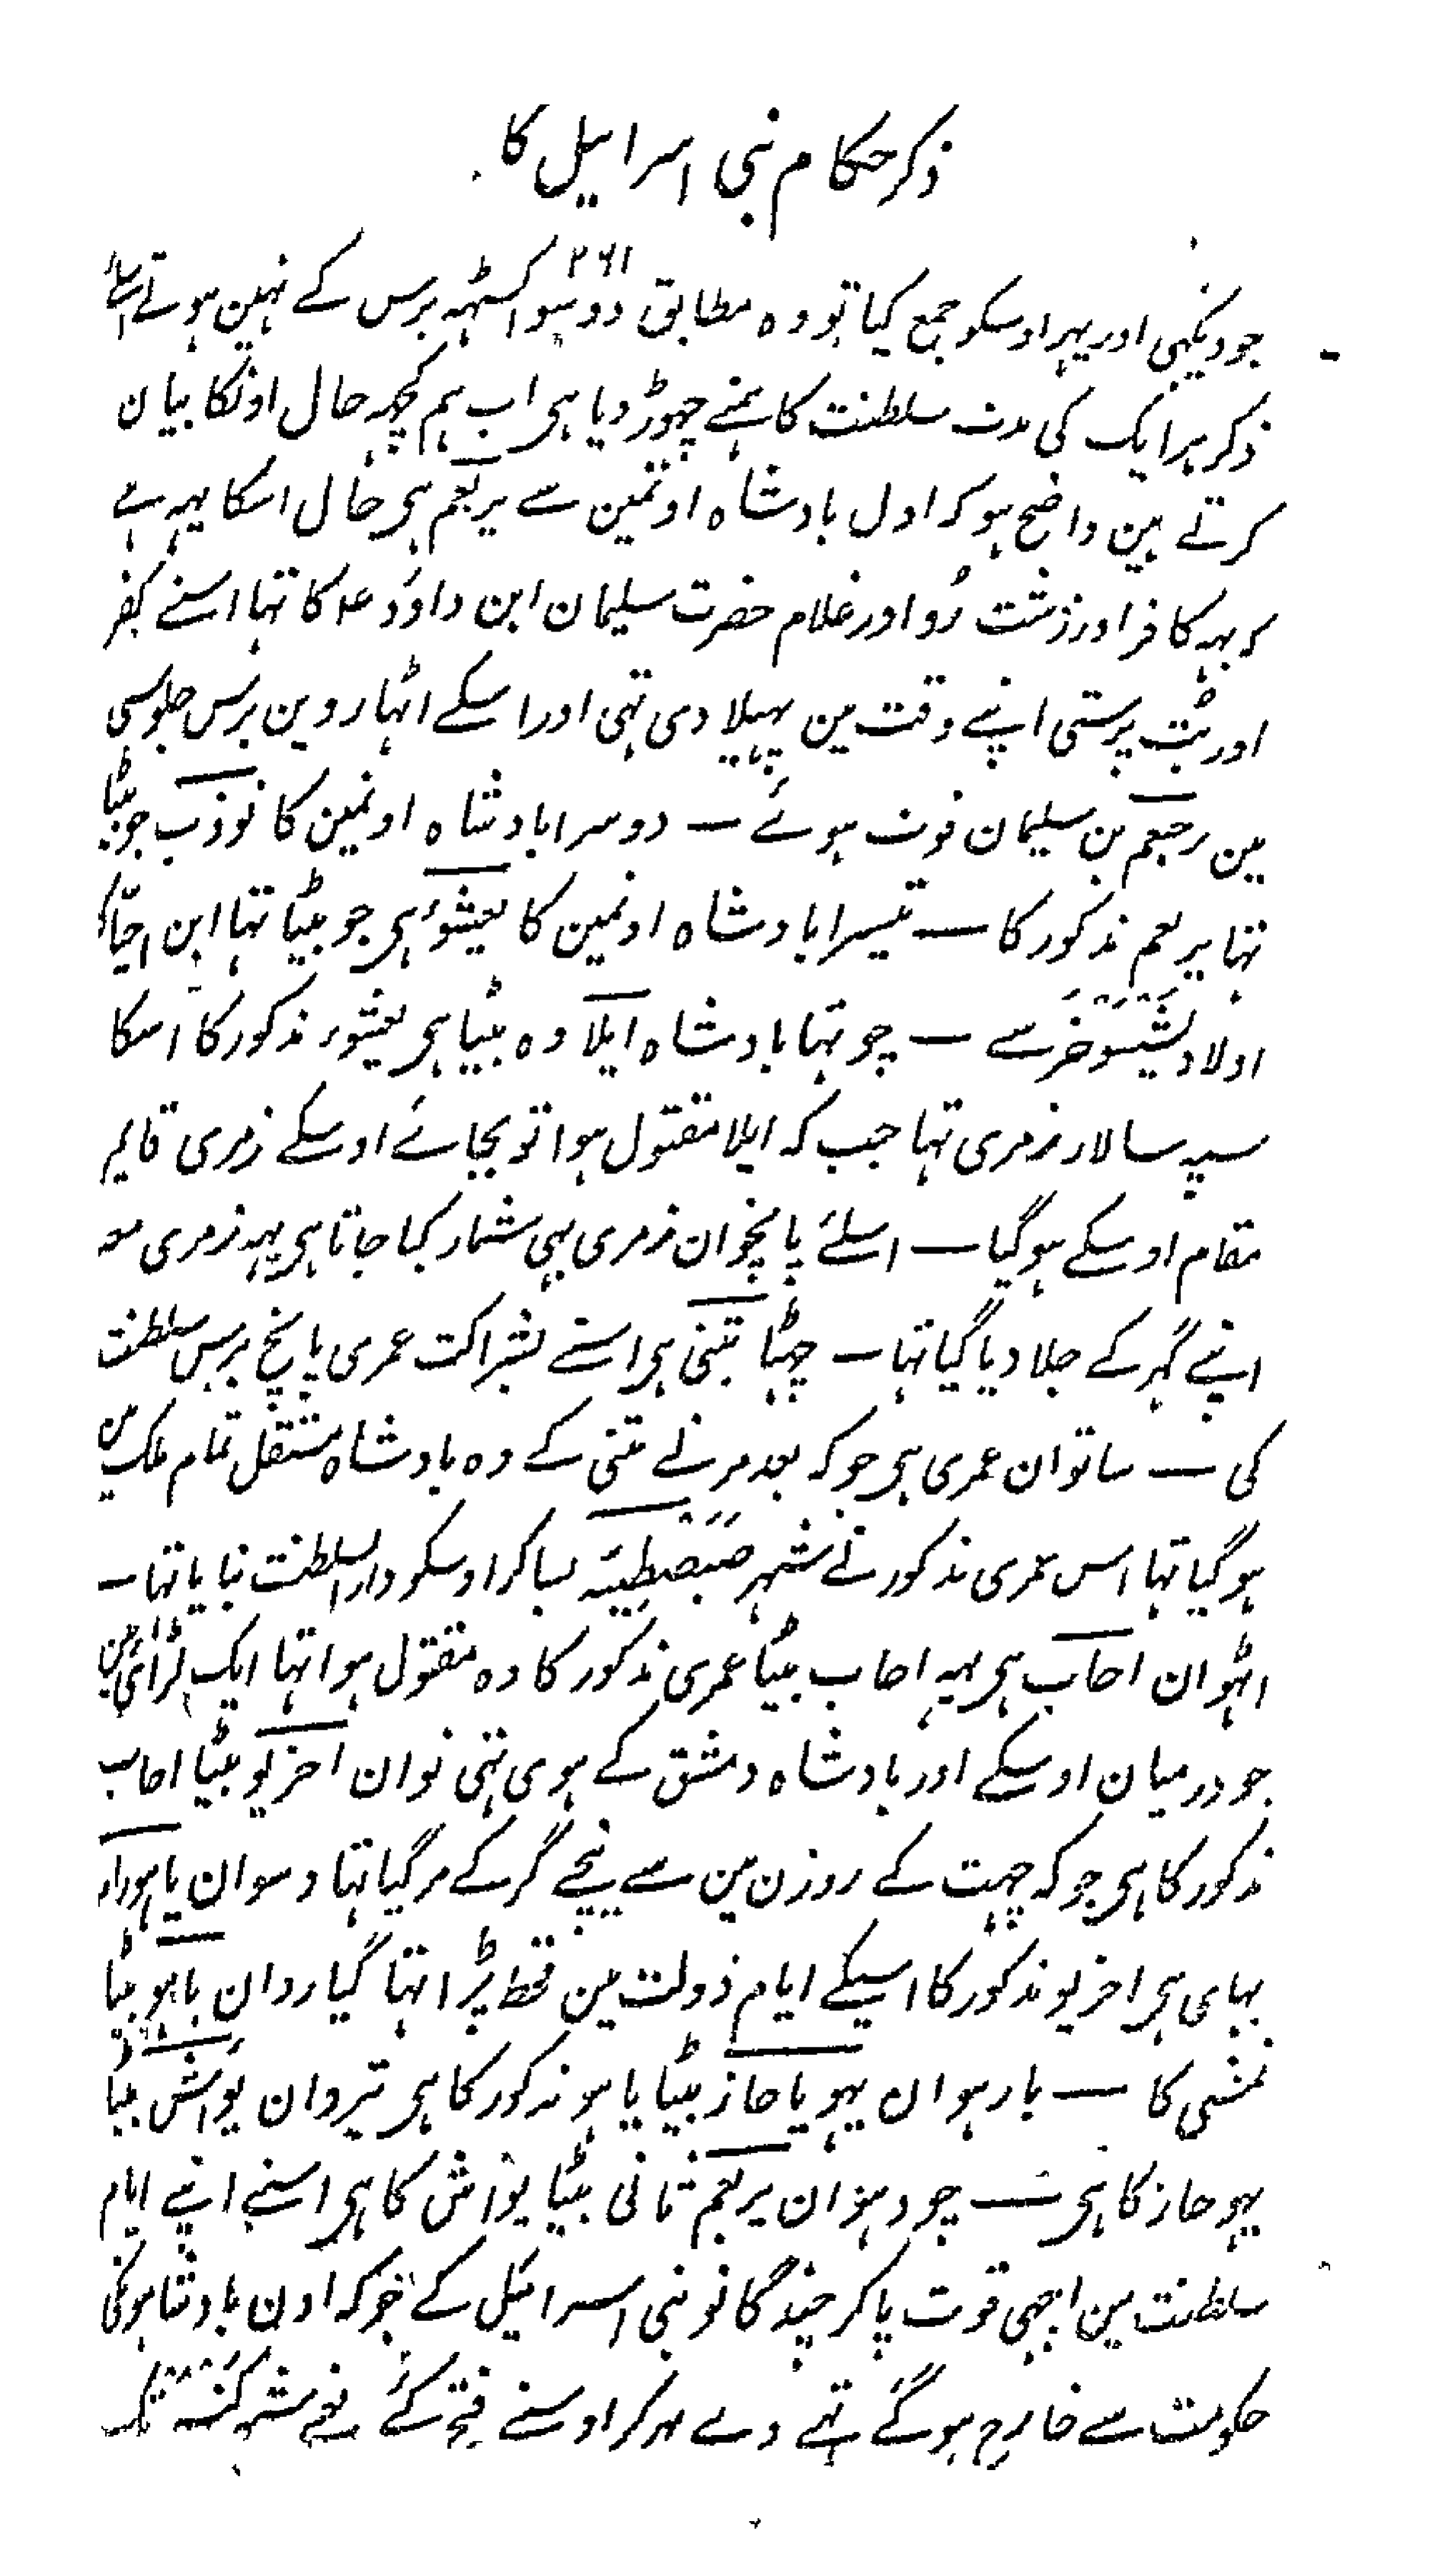 ذکر حکام بنی اسرائیل کا
جو دیکہی اور پہر اوسکو جمع کیا تو وہ مطابق ۲۶۱ دو سو اکسٹہہ برس کے نہین ہوتے اسلئے
ذکر ہر ایک کی مدت سلطنت کا ہمنے چہوڑ دیا ہی اب ہم کچہہ حال اونکا بیان
کرتے ہین واضح ہو کہ اول بادشاہ اونمین سے یربعم ہی حال اسکا یہہ ہے
کہ یہہ کافر اور زشت رُو اور غلام حضرت سلیمان ابن داوٗد ع کا تہا اسنے کفر
اور بُت پرستی اپنے وقت مین پہیلا دی تہی اور اسکے اٹہاروین برس جلوسی
مین رحبعم بن سلیمان فوت ہوئے — دوسرا بادشاہ اونمین کا نوذب جو بیٹا
تہا یربعم مذکور کا — تیسرا بادشاہ اونمین کا بعیشوء ہی جو بیٹا تہا ابن احیّا کا
اولاد یشسوخر سے — چوتہا بادشاہ ایلا وہ بیٹا ہی بعیشوء مذکور کا اسکا
سپہ سالار زمری تہا جب کہ ایلا مقتول ہوا تو بجائے اوسکے زمری قایم
مقام اوسکے ہو گیا — اسلئے پانچوان زمری ہی شمار کیا جاتا ہی یہہ زمری معہ
اپنے گہر کے جلا دیا گیا تہا — چہٹا تبنی ہی اسنے بشراکت عمری پانچ برس سلطنت
کی — ساتوان عمری ہی جو کہ بعد مرنے تبنی کے وہ بادشاہ مستقل تمام ملک مین
ہو گیا تہا اس عمری مذکور نے شہر صبصطیہ بسا کر اوسکو دارالسلطنت بنایا تہا —
اٹہوان احاب ہی یہہ احاب بیٹا عمری مذکور کا وہ مقتول ہوا تہا ایک لڑائی مین
جو درمیان اوسکے اور بادشاہ دمشق کے ہوی تہی نوان احزیو بیٹا احاب
مذکور کا ہی جو کہ چہت کے روزن مین سے نیچے گر کے مر گیا تہا دسوان یاہورام
بہای ہی احزیو مذکور کا اسیکے ایام دولت مین قحط پڑا تہا گیاروان یاہو بیٹا
نمشی کا — بارہوان یہویاحاز بیٹا یاہو مذکور کا ہی تیروان یوَاش بیٹا
یہوحاز کا ہی — چودہوان یربعم ثانی بیٹا یوَاش کا ہی اسنے اپنے ایام
سلطنت مین اچہی قوت پا کر چند گانو بنی اسرائیل کے جو کہ اون بادشاہونکی
حکومت سے خارج ہو گے تہے وے پہر کر اوسنے فتح کئے یعنے شہر